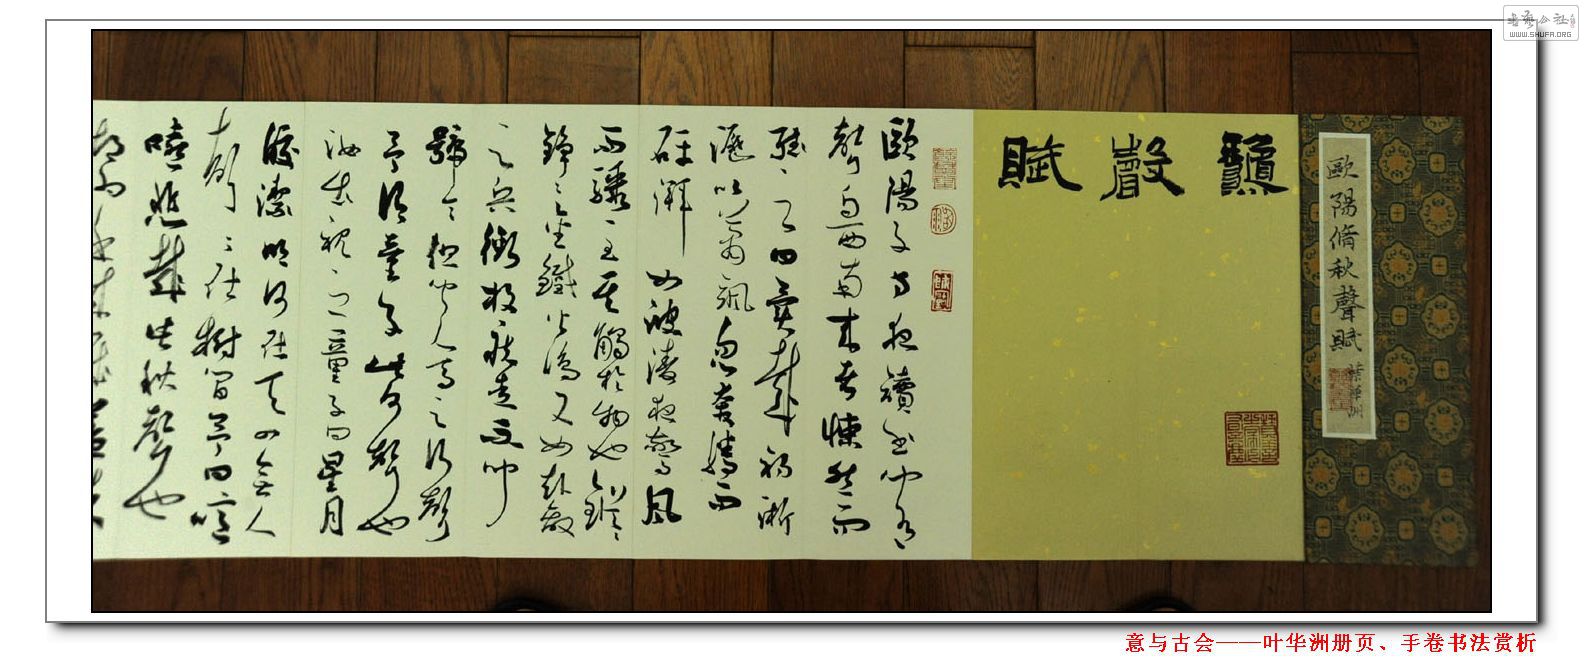 歐陽脩秋聲賦
葉華洲
龝聲賦
歐陽子方夜讀書聞有
聲自西南來者悚然而
聽之曰異哉初淅
瀝以蕭颯忽奔騰而
砰湃如波濤夜驚風
雨驟至其觸於物也鏦鏦
錚錚金鐵皆鳴又如赴敵
之兵銜枚疾走不聞
號令但聞人馬之行聲
予謂童子此何聲也
汝出視之童子曰星月
皎潔明河在天四無人
聲聲在樹間予曰噫
嘻悲哉此秋聲也
WWW.SHUFA.ORG
意与古会——叶华洲册页、手卷书法赏析